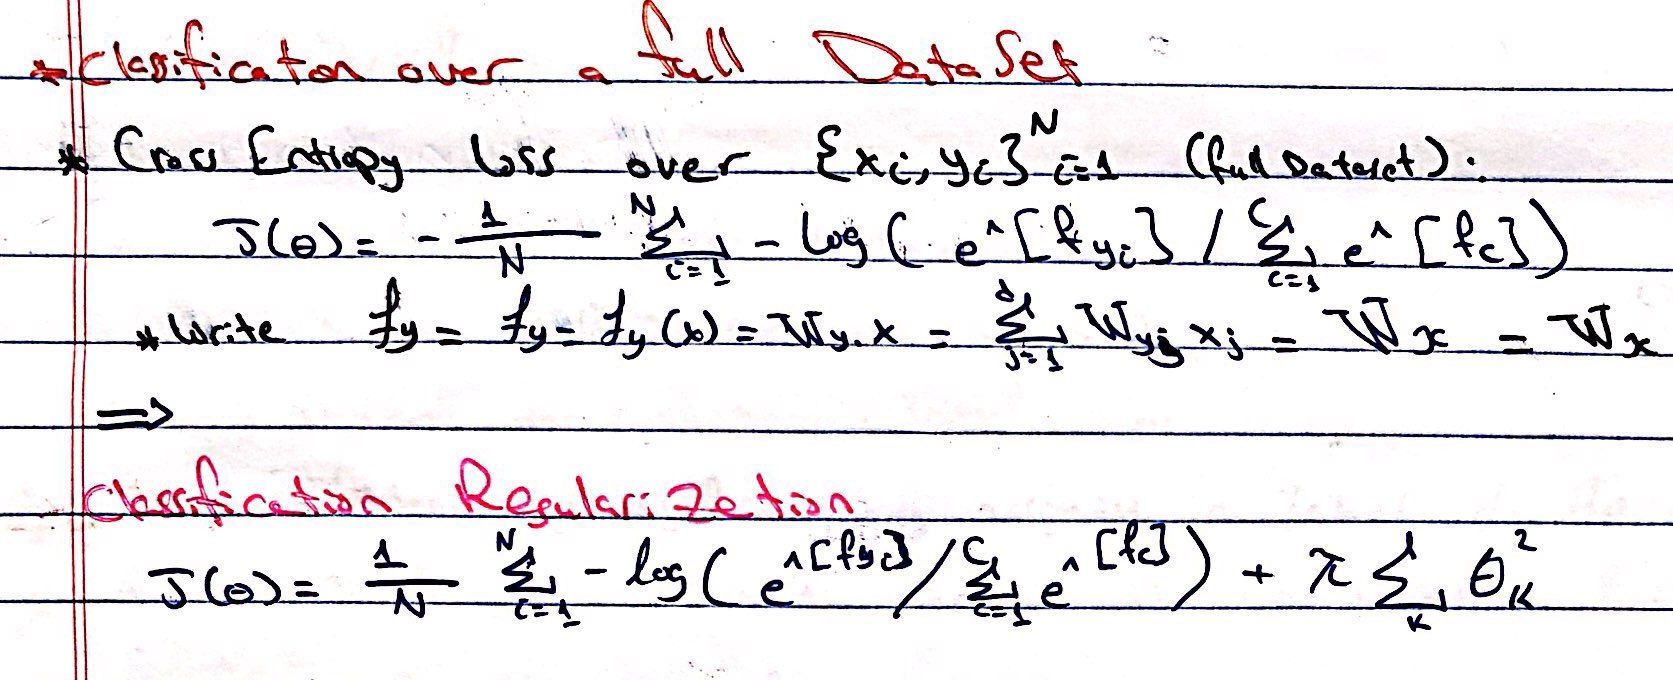 * Classificaton over a full DataSet
* Cross Entropy loss over {xi, yi}^N i=1 (full Dataset):
J(θ) = - 1/N N∑i=1 - log( e^[fyi] / C∑c=1 e^[fc])
* Write fy = fy = fy(x) = Wy.x = d∑j=1 Wyj xj = Wx = Wx
⇒
Classification Regularization
J(θ) = 1/N N∑i=1 - log( e^[fyi] / C∑c=1 e^[fc]) + λ ∑k θk²